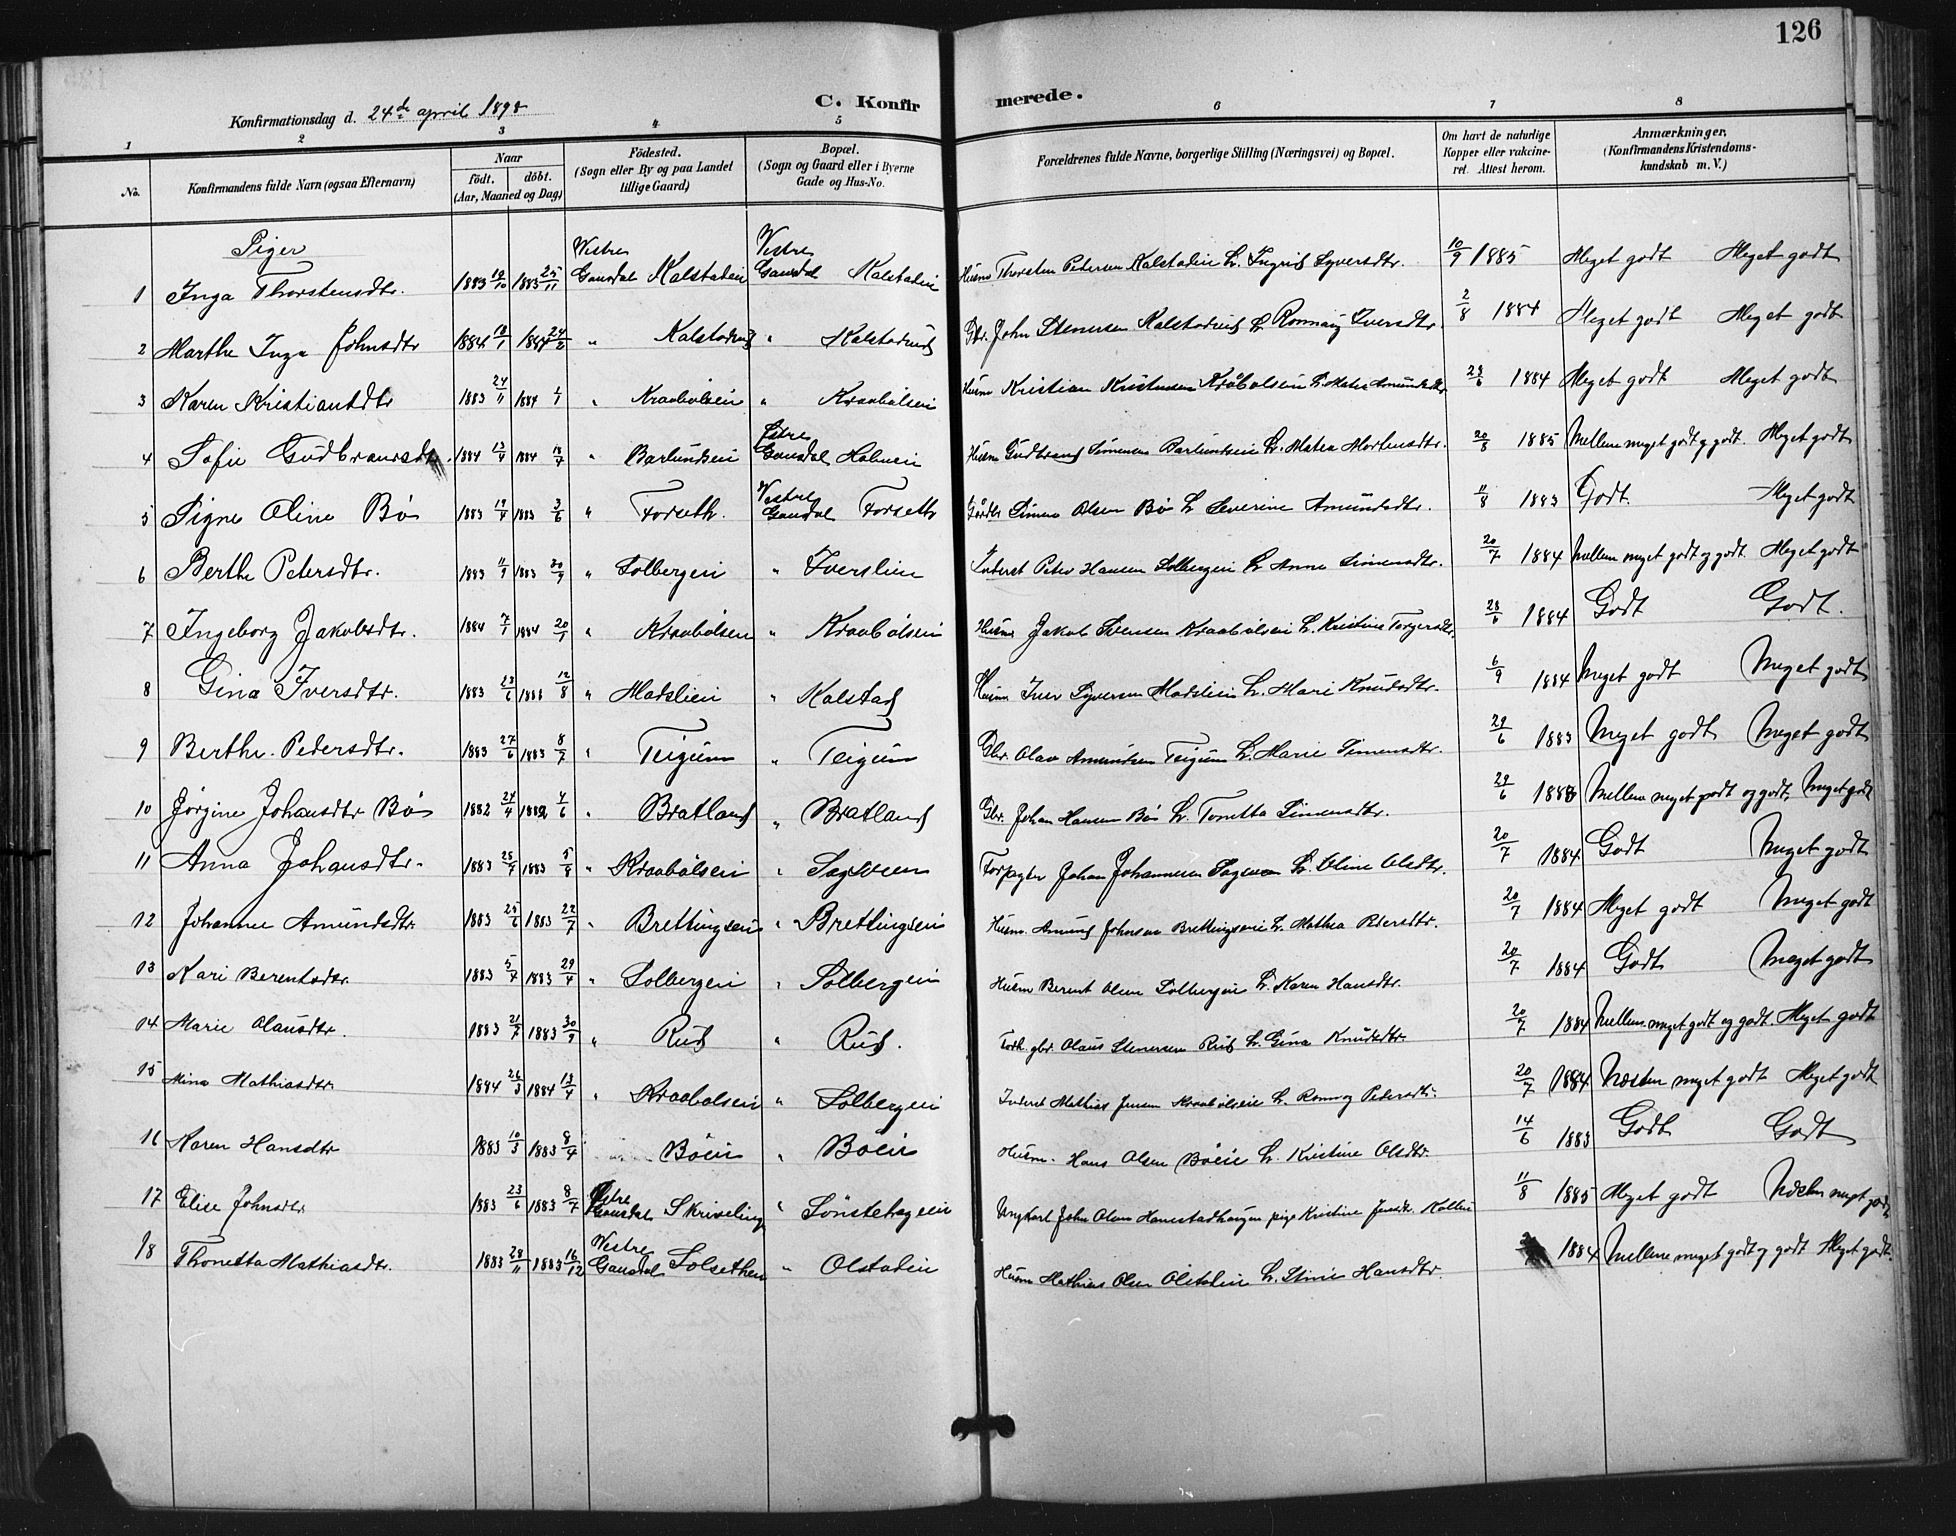 126
Konfirmationsdag d. 24de april 1898
C. Konfirmerede.
1 2 3 4 5 6 7 8
No. Konfirmandens fulde Navn (ogsaa Efternavn) Naar født. døbt. (Aar, Maaned og Dag) Fødested. (Sogn eller By og paa Landet tillige Gaard) Bopæl. (Sogn og Gaard eller i Byerne Gade og Hus-No. Forældrenes fulde Navne, borgerlige Stilling (Næringsvei) og Bopæl. Om havt de naturlige Kopper eller vakcineret. Attest herom. Anmærkninger, (Konfirmandens Kristendomskundskab m. V.)
Piger
1 Inga Thorstensdtr. 1883 19/10 1883 25/11 Vestre Gausdal Kalstadeie Vestre Gausdal Kalstadeie Husm Thorsten Petersen Kalstadeie & Ingrid Syversdtr. 10/9 1885 Meget godt Meget godt
2 Marthe Inga Johnsdtr 1884 18/1 1884 24/2 " Kalstad " Kalstad Gbr. John Stenersen & Ronnaug Iversdtr. 2/8 1884 Meget godt Meget godt
3 Karen Kristiansdtr 1883 24/11 1884 1/1 " Kraabølseie " Kraabølseie Husm Kristian Kristensen Kraabølseie & Mathea Amundsdtr 28/6 1884 Meget godt Meget godt
4 Sofie Gudbransdtr. 1884 13/4 1884 18/7 " Barlundseie Østre Gausdal Holmeie Husm Gudbrand Simensen Barlundseie & Mathea Mortensdtr. 20/8 1885 Mellem meget godt og godt. Meget godt
5 Signe Oline Bø 1883 19/4 1883 3/6 " Forseth. Vestre Gausdal Forseth Simen Olsen Bø & Severine Amundsdtr. 11/8 1883 Godt. Meget godt
6 Berthe Petersdtr. 1883 11/9 1883 30/9 " Solbergeie " Iverslien Inderst Peter Hansen Solbergeie & Anne Simensdtr. 20/7 1884 Mellem meget godt og godt. Meget godt
7 Ingeborg Jakobsdtr. 1884 7/1 1884 20/1 " Kraabølseie " Kraabølseie Husm Jakob Svensen Kraabølseie & Kristine Torgersdtr. 28/6 1884 Godt Godt.
8 Gina Iversdtr. 1883 23/6 1883 12/8 " Madslien " Kalstad Husm Iver Syversen Madslien & Mari Knudsdtr. 6/9 1884 Meget godt Meget godt
9 Berthe Pedersdtr. 1883 27/6 1883 8/7 " Teigum " Teigum Gbr. Olav Amundsen Teigum & Marie Simensdtr. 29/6 1883 Meget godt Meget godt
10 Jørgine Johansdtr Bø 1882 24/4 1882 4/6 " Bratland " Bratland Gbr. Johan Hansen Bø & Tonetta Simensdtr. 29/6 1883 Mellem meget godt og godt, Meget godt
11 Anna Johansdtr. 1883 25/7 1883 5/8 " Kraabølseie " Sagveen Forpagter Johan Johannesen Sagveen & Eline Olsdtr. 20/7 1884 Godt Meget godt
12 Johanne Amundsdtr. 1883 25/6 1883 22/7 " Brettingseie " Brettingseie Husm. Amund Johnsen Brettingseie & Mathea Pedersdtr. 20/7 1884 Meget godt Meget godt
13 Kari Berentsdtr. 1883 5/4 1883 29/4 " Solbergeie " Solbergeie Husm Berent Olsen Solbergeie & Karen Hansdtr. 20/7 1884 Godt Meget godt
14 Marie Olausdtr. 1883 21/7 1883 30/9 " Rud " Rud. Forh. gbr. Olaus Stenersen Rud & Gina Knudsdtr. 20/7 1884 Mellem meget godt og godt. Meget godt
15 Mina Mathiasdtr. 1884 26/3 1884 13/4 " Kraabølseie " Solbergeie Inderst Mathias Jensen Kraabølseie & Ronnog Pedersdtr. 20/7 1884 Næsten meget godt Meget godt
16 Karen Hansdtr 1883 10/3 1883 8/4 Bøeie " Bøeie Husm. Hans Olsen Bøeie & Kristine Olsdtr. 14/6 1883 Godt Godt
17 Elise Johnsdtr 1883 23/6 1883 8/7 Østre Gausdal Skriveling " Sønstehageeie Ungkarl John Olsen Hamstadhaugen pige Kristine 11/8 1885 Meget godt Næsten meget godt
18 Thonetta Mathiasdtr. 1883 28/11 1883 16/12 Vestre Gausdal Solsethen " Olstadeie Husm Mathias Olsen Olstadeie & Stine Hansdtr. 1884 Mellem meget godt og godt Meget godt.